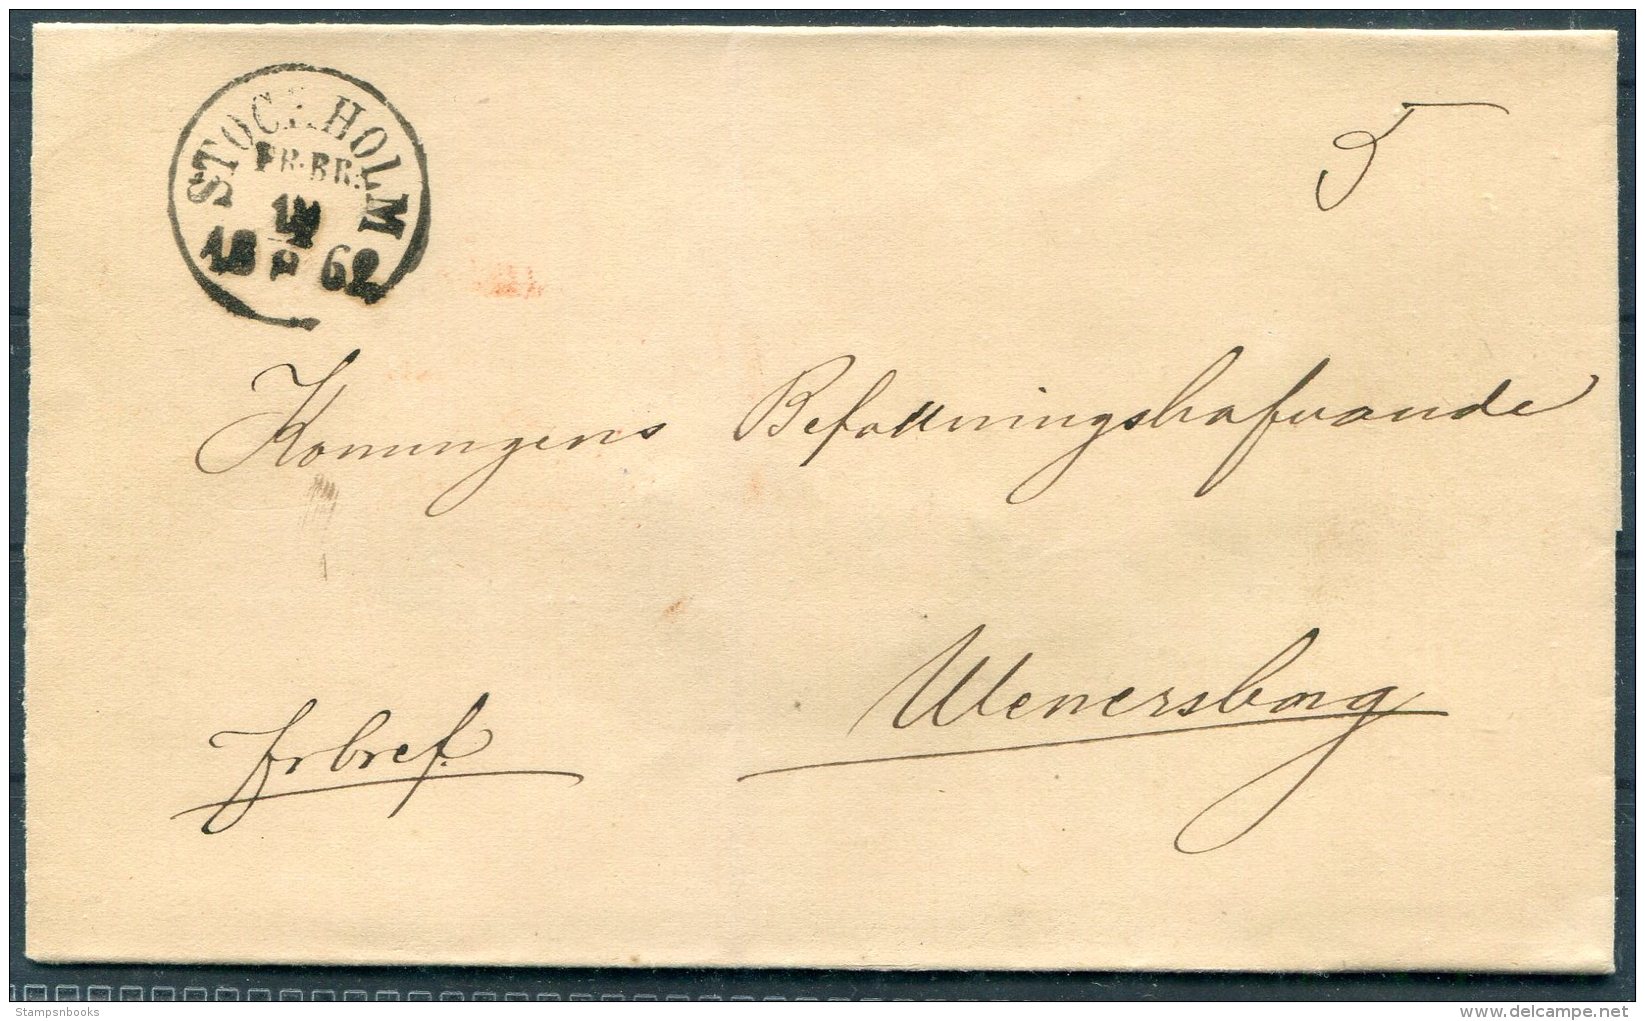 STOCKHOLM
FR.BR.
18 62
5
Konungens Befallningshafvande
Wenersborg
frbref.
Stampsnbooks
delcampe.net